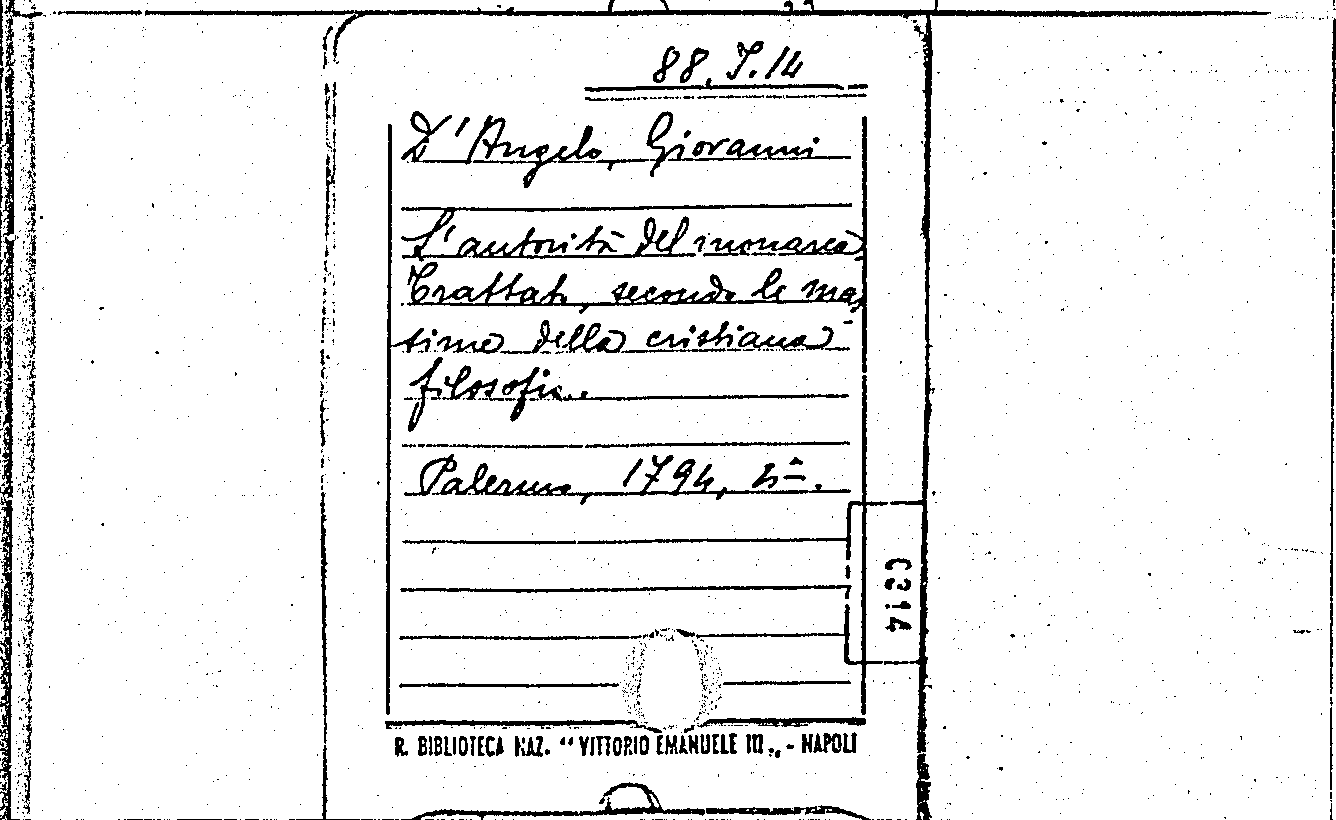 88. J. 14
D'Angelo, Giovanni
L'autorità del monarca.
Trattato, secondo le mas-
sime della cristiana
filosofia.
Palermo, 1794, 4º.
0314
R. BIBLIOTECA NAZ. “ VITTORIO EMANUELE III „ - NAPOLI